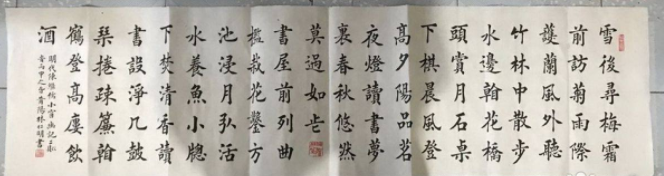 雪後尋梅霜
前訪菊雨際
護蘭風外聽
竹林中散步
水邊看花橋
頭賞月石桌
下棋晨風登
高夕陽品茗
夜燈讀書夢
裏春秋悠然
莫過如是
書屋前列曲
檻栽花鑿方
池浸月引活
水養魚小牕
下焚清香讀
書設淨几鼓
琴捲疎簾看
鶴登高廔飲
酒
明代陳繼儒小窗幽記二則